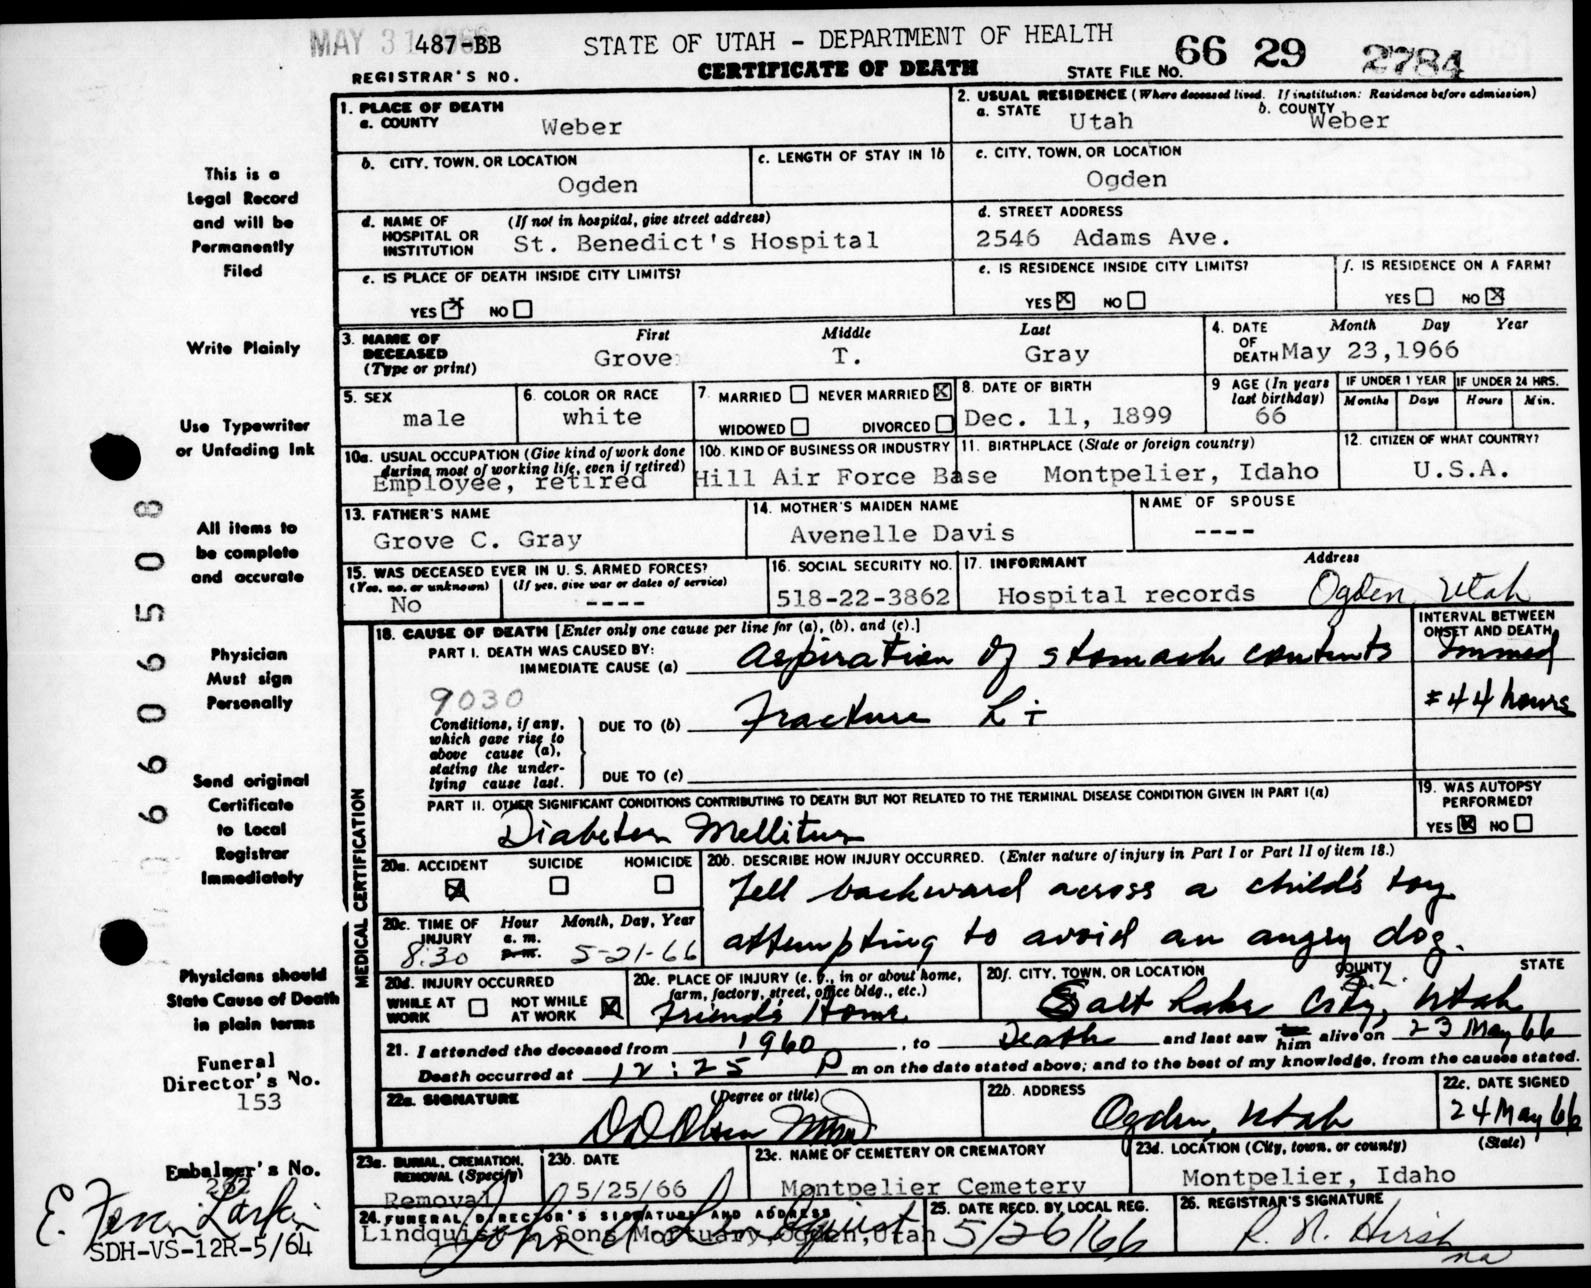 MAY 31 1966 487-BB
STATE OF UTAH - DEPARTMENT OF HEALTH
66 29 2784
REGISTRAR'S NO.
CERTIFICATE OF DEATH
STATE FILE NO.
1. PLACE OF DEATH
a. COUNTY
Weber
2. USUAL RESIDENCE (Where deceased lived. If institution: Residence before admission)
a. STATE
Utah
b. COUNTY
Weber
b. CITY, TOWN, OR LOCATION
Ogden
c. LENGTH OF STAY IN 1b
c. CITY, TOWN, OR LOCATION
Ogden
d. NAME OF HOSPITAL OR INSTITUTION
(If not in hospital, give street address)
St. Benedict's Hospital
d. STREET ADDRESS
2546 Adams Ave.
e. IS PLACE OF DEATH INSIDE CITY LIMITS?
YES X NO
e. IS RESIDENCE INSIDE CITY LIMITS?
YES X NO
f. IS RESIDENCE ON A FARM?
YES NO X
3. NAME OF DECEASED (Type or print)
First Middle Last
Grove T. Gray
4. DATE OF DEATH
Month Day Year
May 23,1966
5. SEX
male
6. COLOR OR RACE
white
7. MARRIED NEVER MARRIED X
WIDOWED DIVORCED
8. DATE OF BIRTH
Dec. 11, 1899
9 AGE (In years last birthday)
66
IF UNDER 1 YEAR
Months Days
IF UNDER 24 HRS.
Hours Min.
10a. USUAL OCCUPATION (Give kind of work done during most of working life, even if retired)
Employee, retired
10b. KIND OF BUSINESS OR INDUSTRY
Hill Air Force Base
11. BIRTHPLACE (State or foreign country)
Montpelier, Idaho
12. CITIZEN OF WHAT COUNTRY?
U.S.A.
13. FATHER'S NAME
Grove C. Gray
14. MOTHER'S MAIDEN NAME
Avenelle Davis
NAME OF SPOUSE
----
15. WAS DECEASED EVER IN U. S. ARMED FORCES?
(Yes, no, or unknown) (If yes, give war or dates of service)
No ----
16. SOCIAL SECURITY NO.
518-22-3862
17. INFORMANT Address
Hospital records Ogden, Utah
18. CAUSE OF DEATH [Enter only one cause per line for (a), (b), and (c).]
INTERVAL BETWEEN ONSET AND DEATH
PART I. DEATH WAS CAUSED BY:
IMMEDIATE CAUSE (a) Aspiration of stomach contents
Immed
9030
Conditions, if any, which gave rise to above cause (a), stating the underlying cause last.
DUE TO (b) Fracture L
± 44 hours
DUE TO (c)
PART II. OTHER SIGNIFICANT CONDITIONS CONTRIBUTING TO DEATH BUT NOT RELATED TO THE TERMINAL DISEASE CONDITION GIVEN IN PART I(a)
Diabetes Mellitus
19. WAS AUTOPSY PERFORMED?
YES X NO
MEDICAL CERTIFICATION
20a. ACCIDENT SUICIDE HOMICIDE
X
20b. DESCRIBE HOW INJURY OCCURRED. (Enter nature of injury in Part I or Part II of item 18.)
Fell backward across a child's toy
attempting to avoid an angry dog.
20c. TIME OF INJURY
Hour Month, Day, Year
a. m.
p. m.
8:30 5-21-66
20d. INJURY OCCURRED
WHILE AT WORK NOT WHILE AT WORK X
20e. PLACE OF INJURY (e. g., in or about home, farm, factory, street, office bldg., etc.)
Friend's Home
20f. CITY, TOWN, OR LOCATION COUNTY STATE
Salt Lake City, Utah
21. I attended the deceased from 1960, to Death and last saw her him alive on 23 May 66
Death occurred at 12:25 P m on the date stated above; and to the best of my knowledge, from the causes stated.
22a. SIGNATURE (Degree or title)
22b. ADDRESS
Ogden, Utah
22c. DATE SIGNED
24 May 66
23a. BURIAL, CREMATION, REMOVAL (Specify)
Removal
23b. DATE
5/25/66
23c. NAME OF CEMETERY OR CREMATORY
Montpelier Cemetery
23d. LOCATION (City, town, or county) (State)
Montpelier, Idaho
24. FUNERAL DIRECTOR'S SIGNATURE AND ADDRESS
Lindquist & Sons Mortuary, Ogden, Utah
25. DATE RECD. BY LOCAL REG.
5/26/66
26. REGISTRAR'S SIGNATURE
This is a
Legal Record
and will be
Permanently
Filed
Write Plainly
Use Typewriter
or Unfading Ink
All items to
be complete
and accurate
Physician
Must sign
Personally
Send original
Certificate
to Local
Registrar
Immediately
Physicians should
State Cause of Death
in plain terms
Funeral
Director's No.
153
Embalmer's No.
SDH-VS-12R-5/64
6606508